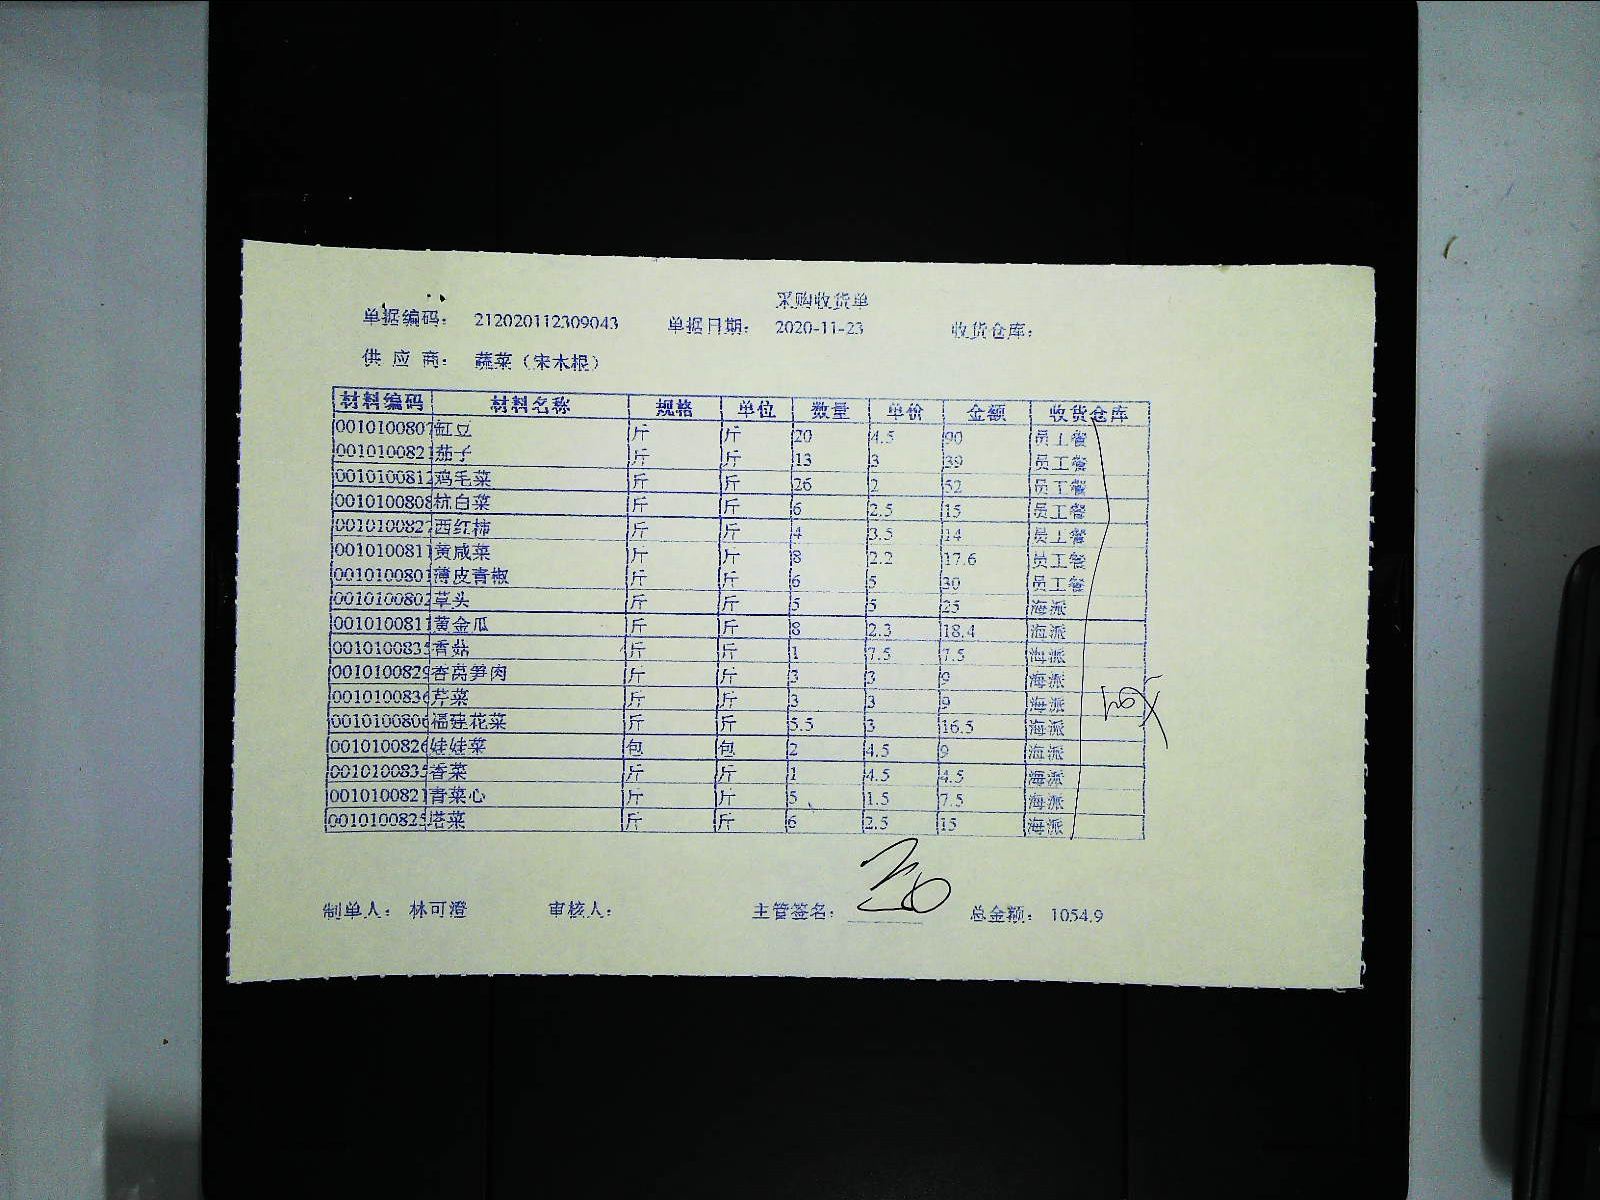 采购收货单
单据编码： 212020112309043 单据日期： 2020-11-23 收货仓库：
供 应 商： 蔬菜（宋木根）
材料编码 材料名称 规格 单位 数量 单价 金额 收货仓库
0010100807 缸豆 斤 斤 20 4.5 90 员工餐
0010100821 茄子 斤 斤 13 3 39 员工餐
0010100812 鸡毛菜 斤 斤 26 2 52 员工餐
0010100808 杭白菜 斤 斤 6 2.5 15 员工餐
0010100827 西红柿 斤 斤 4 3.5 14 员工餐
0010100811 黄咸菜 斤 斤 8 2.2 17.6 员工餐
0010100801 薄皮青椒 斤 斤 6 5 30 员工餐
0010100802 草头 斤 斤 5 5 25 海派
0010100811 黄金瓜 斤 斤 8 2.3 18.4 海派
0010100835 香菇 斤 斤 1 7.5 7.5 海派
0010100829 杏莴笋肉 斤 斤 3 3 9 海派
0010100836 芹菜 斤 斤 3 3 9 海派
0010100806 福建花菜 斤 斤 5.5 3 16.5 海派
0010100826 娃娃菜 包 包 2 4.5 9 海派
0010100835 香菜 斤 斤 1 4.5 4.5 海派
0010100821 青菜心 斤 斤 5 1.5 7.5 海派
0010100825 塔菜 斤 斤 6 2.5 15 海派
制单人： 林可澄 审核人： 主管签名： 总金额： 1054.9